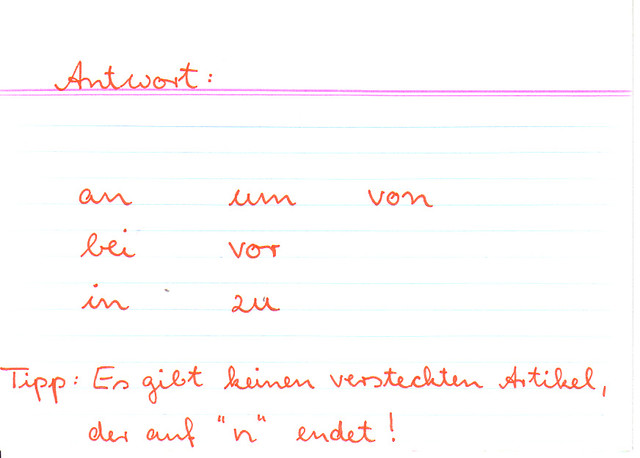 Antwort:
an um von
bei vor
in zu
Tipp: Es gibt keinen versteckten Artikel,
der auf "n" endet!